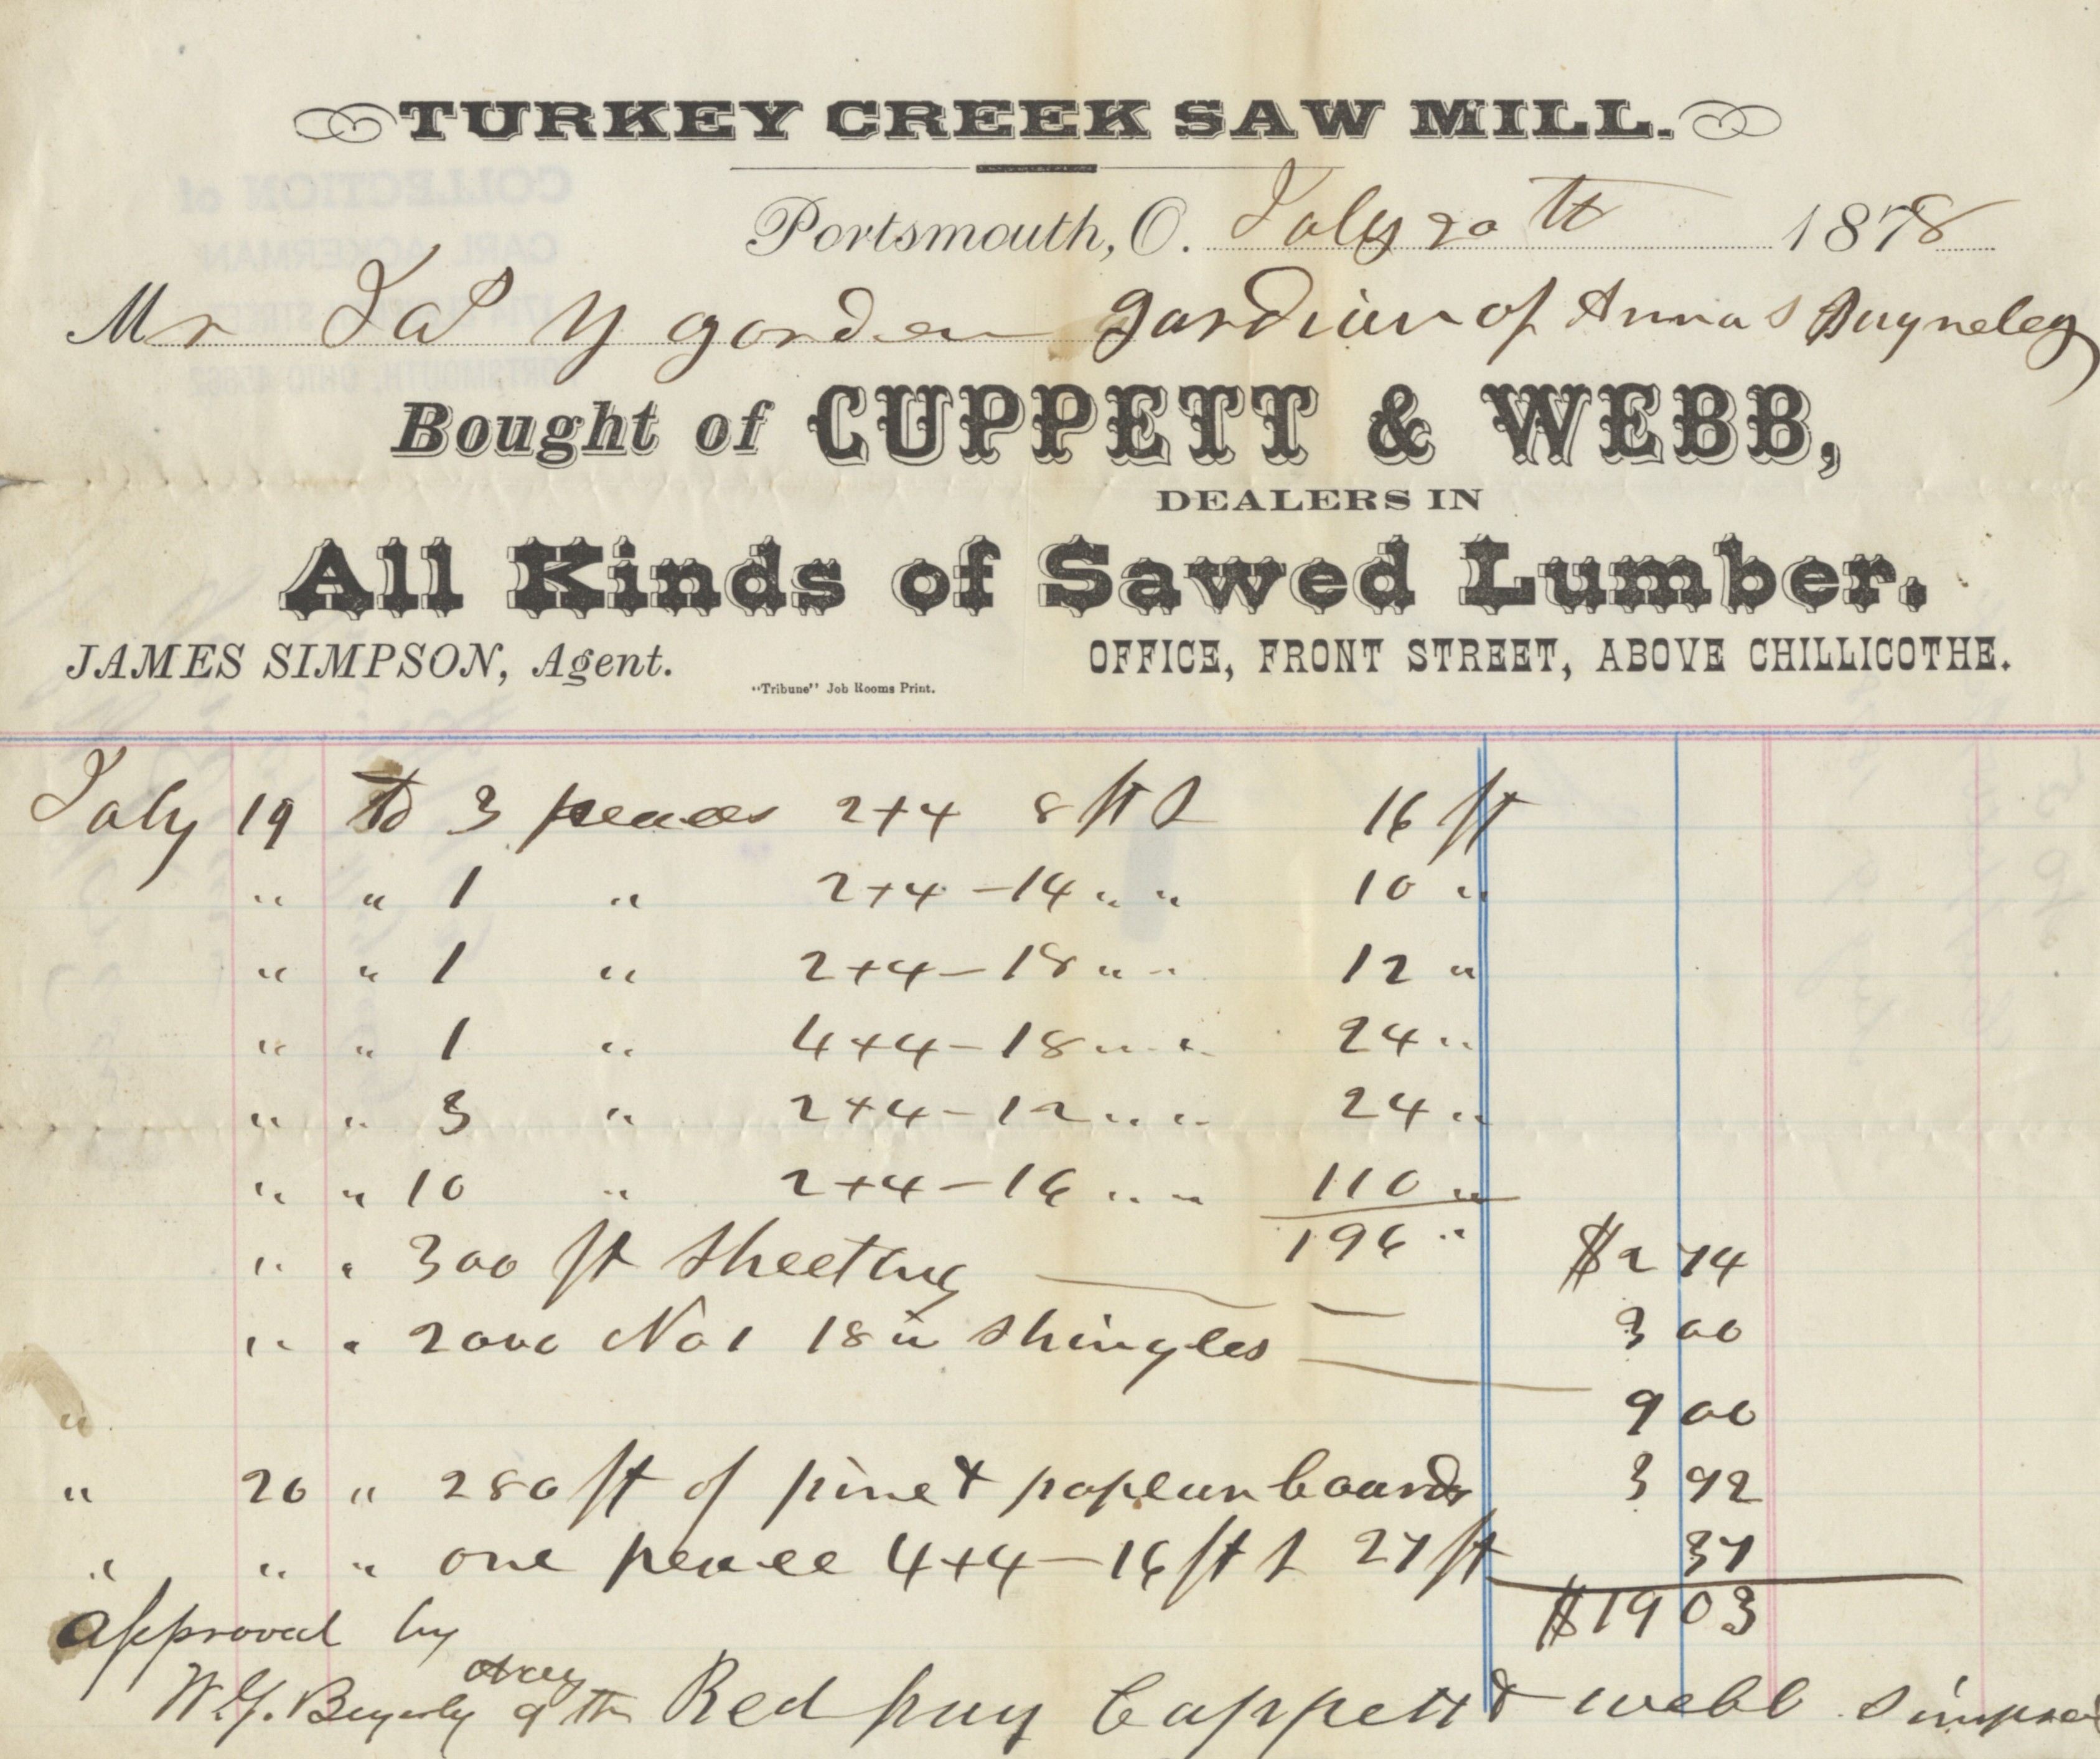 TURKEY CREEK SAW MILL.
Portsmouth, O. July 20 th 1878
Mr Jas Y gorden gardian of Anna S
Bought of CUPPETT & WEBB,
DEALERS IN
All Kinds of Sawed Lumber.
JAMES SIMPSON, Agent. OFFICE, FRONT STREET, ABOVE CHILLICOTHE.
"Tribune" Job Rooms Print.
July 19 to 3 peaces 2+4 8 ft L 16 ft
" " 1 " 2+4 - 14 " " 10 "
" " 1 " 2+4 - 18 " " 12 "
" " 1 " 4+4 - 18 " " 24 "
" " 3 " 2+4 - 12 " " 24 "
" " 10 " 2+4 - 16 " " 110 "
196 "
" " 300 ft sheeting $2 74
" " 2000 No 1 18 in shingles 3 00
" 9 00
" 20 " 280 ft of pine & poplar boards 3 92
" " " one peace 4+4 - 16 ft L 27 ft 37
$19 03
Approved by
W.Y. Beyerly
Red pay Cuppett & webb Simpson
COLLECTION of
CARL ACKERMAN
1714 STREET
PORTSMOUTH, OHIO 45662